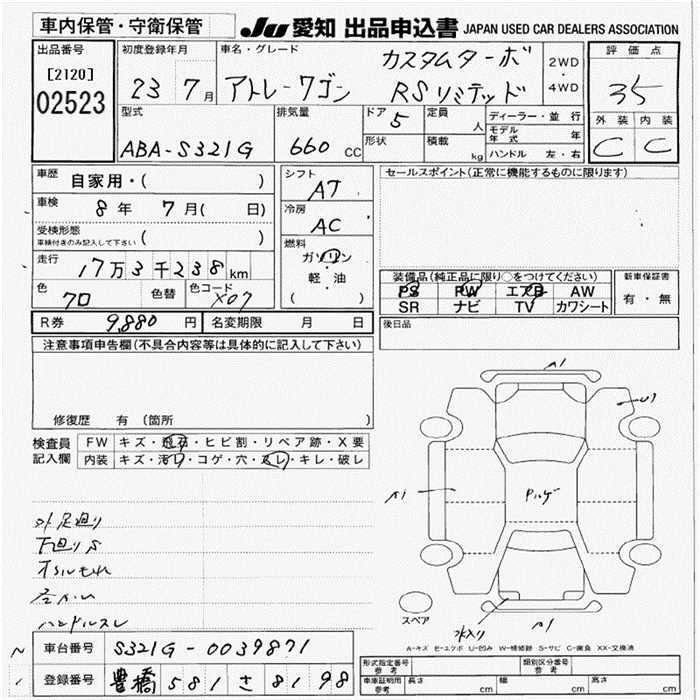 車内保管・守衛保管
JU 愛知 出品申込書 JAPAN USED CAR DEALERS ASSOCIATION
出品番号 初度登録年月 車名・グレード 評価点
[2120] 02523
23 7月 アトレーワゴン カスタムターボ RSリミテッド 2WD・4WD 35
型式 排気量 ドア 定員 ディーラー・並行 外装 内装
ABA-S321G 660 CC 5 人 モデル年式 年 C C
形状 積載 kg ハンドル 左・右
車歴 自家用・( ) シフト AT セールスポイント(正常に機能するものに限ります)
車検 8年 7月( 日) 冷房 AC
受検形態 車検付きのみ記入して下さい ( )
燃料 ガソリン 軽・油 ( )
走行 17万3千238km
装備品(純正品に限り○をつけてください) 新車保証書
PS PW エアB AW 有・無
SR ナビ TV カワシート
色 クロ 色替 色コード X07
R券 9,880円 名変期限 月 日 後日品
注意事項申告欄(不具合内容等は具体的に記入して下さい)
修復歴 有 (箇所 )
検査員記入欄 FW キズ・飛石・ヒビ割・リペア跡・X要
内装 キズ・汚レ・コゲ・穴・スレ・キレ・破レ
A1
U1
A1
A1
スペア
水入り
外足廻り
下廻りS
ハンドルスレ
A-キズ E-エクボ U-凹み W-補修跡 S-サビ C-腐食 XX-交換済
車台番号 S321G-0039871
登録番号 豊橋 581 さ 8198
形式指定番号 参考 類別区分番号 参考
車庫証明用 参考 長さ cm 幅 cm 高さ cm